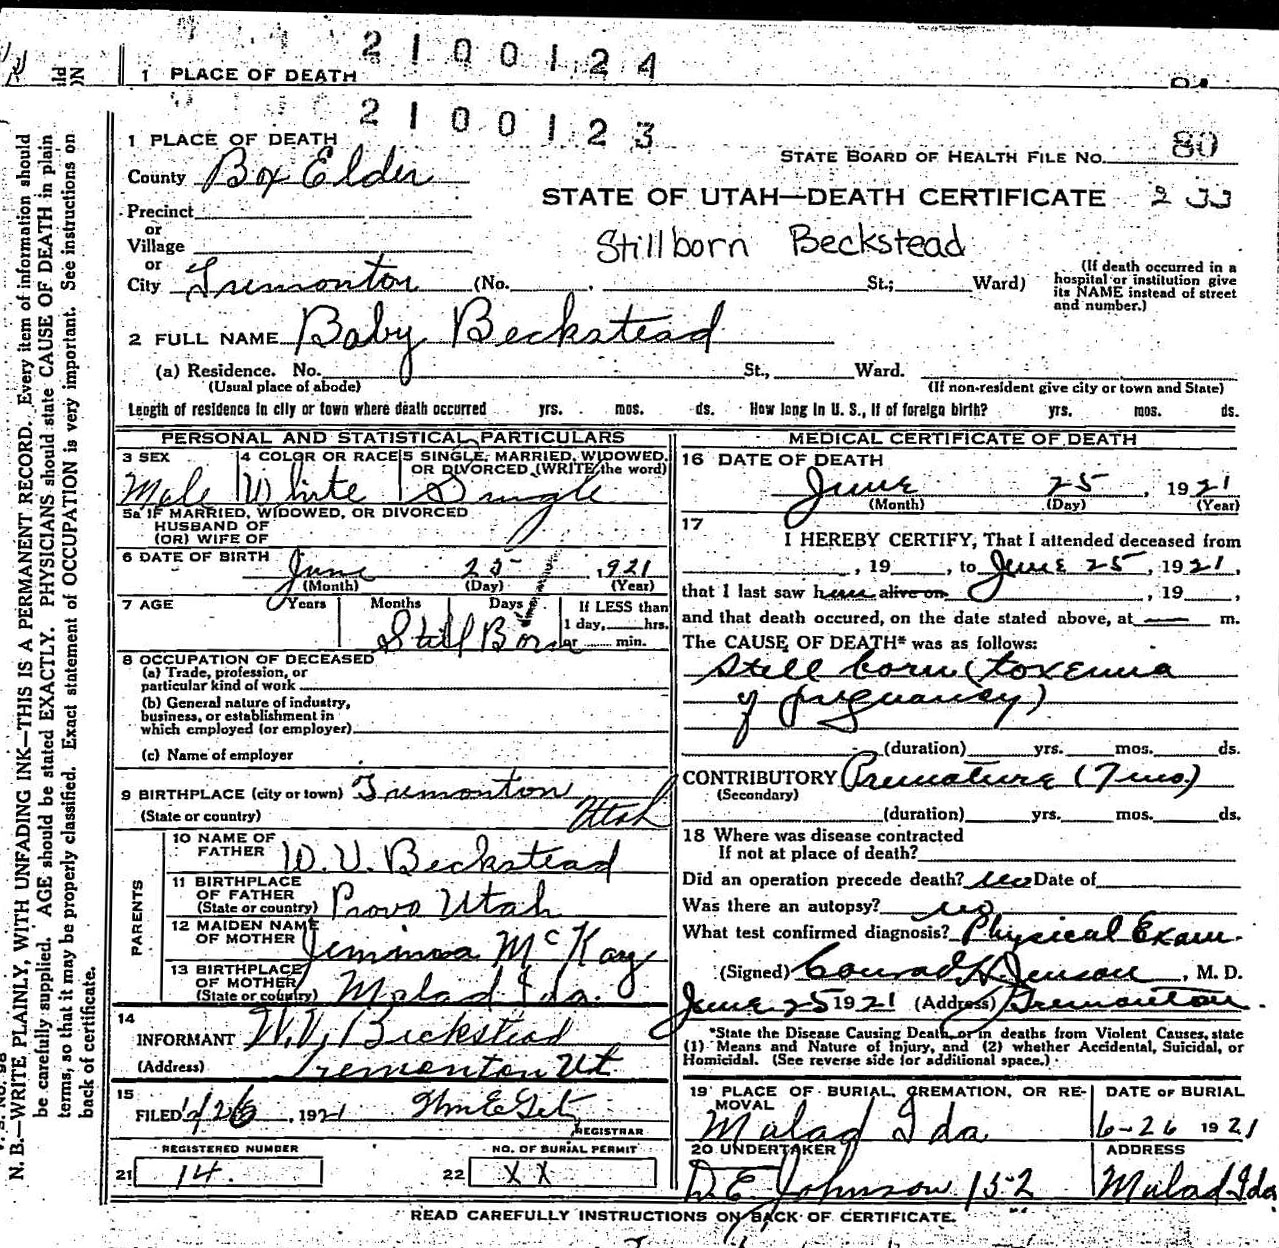 2100124
1 PLACE OF DEATH
2100123
1 PLACE OF DEATH
STATE BOARD OF HEALTH FILE NO. 80
County Box Elder
STATE OF UTAH—DEATH CERTIFICATE 233
Precinct
or
Village
Stillborn Beckstead
or
City Tremonton (No. St.; Ward)
(If death occurred in a hospital or institution give its NAME instead of street and number.)
2 FULL NAME Baby Beckstead
(a) Residence. No. St., Ward.
(Usual place of abode) (If non-resident give city or town and State)
Length of residence in city or town where death occurred yrs. mos. ds. How long in U. S., if of foreign birth? yrs. mos. ds.
PERSONAL AND STATISTICAL PARTICULARS
3 SEX 4 COLOR OR RACE 5 SINGLE, MARRIED, WIDOWED, OR DIVORCED (WRITE the word)
Male White Single
5a IF MARRIED, WIDOWED, OR DIVORCED
HUSBAND OF
(OR) WIFE OF
6 DATE OF BIRTH June 25 1921
(Month) (Day) (Year)
7 AGE Years Months Days If LESS than
1 day, hrs.
or min.
Still Born
8 OCCUPATION OF DECEASED
(a) Trade, profession, or
particular kind of work
(b) General nature of industry,
business, or establishment in
which employed (or employer)
(c) Name of employer
9 BIRTHPLACE (city or town) Tremonton
(State or country) Utah
PARENTS
10 NAME OF
FATHER W. V. Beckstead
11 BIRTHPLACE
OF FATHER
(State or country) Provo Utah
12 MAIDEN NAME
OF MOTHER Jemimoa McKay
13 BIRTHPLACE
OF MOTHER
(State or country) Malad Ida.
14
INFORMANT W. V. Beckstead
(Address) Tremonton Ut
15
FILED 26, 1921
REGISTRAR
REGISTERED NUMBER NO. OF BURIAL PERMIT
21 14. 22 XX
MEDICAL CERTIFICATE OF DEATH
16 DATE OF DEATH
June 25, 1921
(Month) (Day) (Year)
17
I HEREBY CERTIFY, That I attended deceased from
, 19 , to June 25, 1921,
that I last saw him alive on , 19 ,
and that death occured, on the date stated above, at — m.
The CAUSE OF DEATH* was as follows:
Still born (toxemia
of pregnancy)
(duration) yrs. mos. ds.
CONTRIBUTORY Premature (7 mo.)
(Secondary)
(duration) yrs. mos. ds.
18 Where was disease contracted
If not at place of death?
Did an operation precede death? no Date of
Was there an autopsy? no
What test confirmed diagnosis? Physical Exam.
(Signed) Conrad H. Jenson, M. D.
June 25 1921 (Address) Tremonton.
*State the Disease Causing Death, or in deaths from Violent Causes, state
(1) Means and Nature of Injury, and (2) whether Accidental, Suicidal, or
Homicidal. (See reverse side for additional space.)
19 PLACE OF BURIAL, CREMATION, OR RE- DATE OF BURIAL
MOVAL
Malad Ida 6-26 1921
20 UNDERTAKER ADDRESS
D. E. Johnson 152 Malad Ida
READ CAREFULLY INSTRUCTIONS ON BACK OF CERTIFICATE.
N. B.—WRITE PLAINLY, WITH UNFADING INK—THIS IS A PERMANENT RECORD. Every item of information should
be carefully supplied. AGE should be stated EXACTLY. PHYSICIANS should state CAUSE OF DEATH in plain
terms, so that it may be properly classified. Exact statement of OCCUPATION is very important. See instructions on
back of certificate.